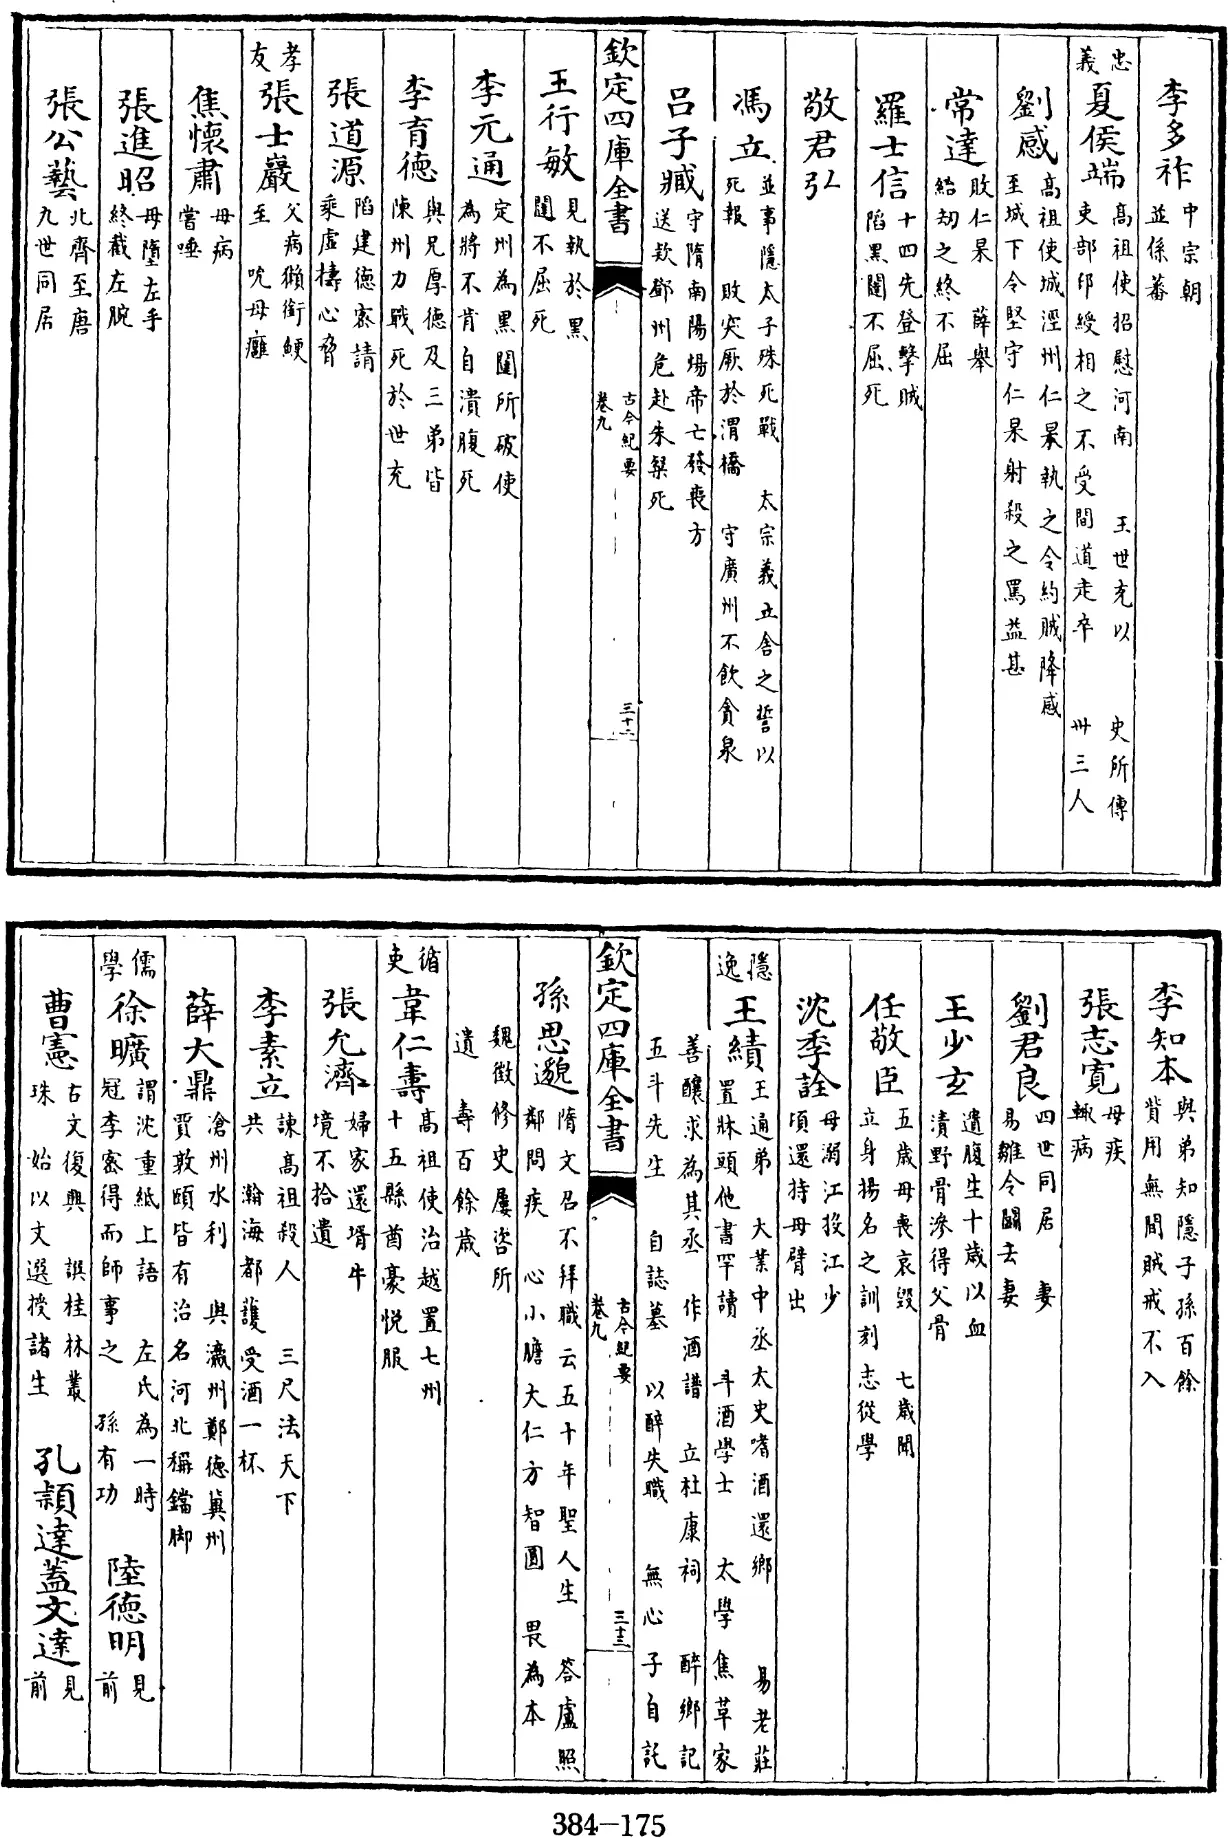 李多祚中宗朝並係蕃
忠義夏侯端高祖使招慰河南 王世充以 史所傳吏部印綬相之不受間道走卒 卅三人
劉感高祖使城涇州仁杲執之令約賊降感至城下令堅守仁杲射殺之罵益甚
常達敗仁杲 薛舉紿刼之終不屈
羅士信十四先登擊賊陷黑闥不屈死
敬君弘
馮立並事隱太子殊死戰 太宗義立舍之誓以死報 敗突厥於渭橋 守廣州不飲貪泉
吕子臧守隋南陽煬帝亡發喪方送欵鄧州危赴朱粲死
欽定四庫全書 古今紀要卷九 三十二
王行敏見執於黑闥不屈死
李元通定州為黑闥所破使為將不肯自潰腹死
李育德與兄厚德及三弟皆陳州力戰死於世充
張道源陷建德密請乘虛擣心脅
孝友張士巖父病獺銜鯁至 吮母癰
焦懷肅母病嘗唾
張進昭母墮左手終截左腕
張公藝北齊至唐九世同居
李知本與弟知隱子孫百餘貲用無間賊戒不入
張志寛母疾輙病
劉君良四世同居 妻易雛令鬭去妻
王少玄遺腹生十歲以血漬野骨滲得父骨
任敬臣五歲母喪哀毀 七歲聞立身揚名之訓刻志從學
沈季詮母溺江投江少頃還持母臂出
隱逸王績王通弟 大業中丞太史嗜酒還鄉 易老莊置牀頭他書罕讀 斗酒學士 太學 焦革家
善釀求為其丞 作酒譜 立杜康祠 醉鄉記五斗先生 自誌墓 以醉失職 無心子自託
欽定四庫全書 古今紀要卷九 三十三
孫思邈隋文召不拜職云五十年聖人生 答盧照鄰問疾 心小膽大仁方智圓 畏為本
魏徵修史屢咨所遺 壽百餘歲
循吏韋仁壽高祖使治越置七州十五縣酋豪悅服
張允濟婦家還壻牛境不拾遺
李素立諫高祖殺人 三尺法天下共 瀚海都護受酒一杯
薛大鼎滄州水利 與瀛州鄭德冀州賈敦頤皆有治名河北稱鐺脚
儒學徐曠謂沈重紙上語 左氏為一時冠李密得而師事之 孫有功 陸德明見前
曹憲古文復興 譔桂林叢珠 始以文選授諸生 孔穎達蓋文達見前
384-175